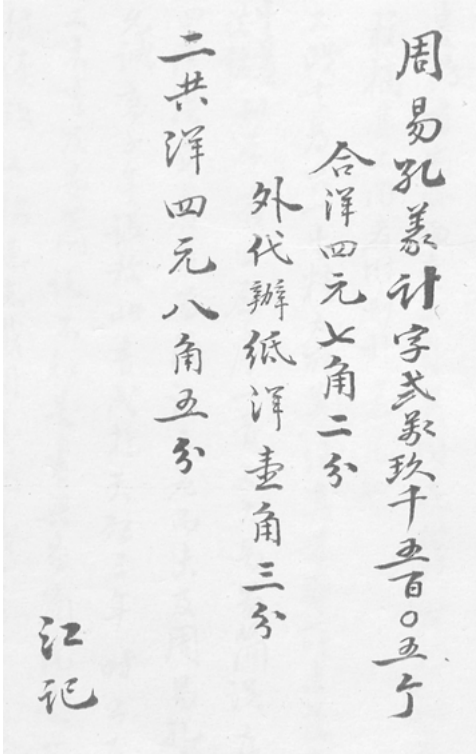 周易孔義計字弍萬玖千五百〇五个
合洋四元七角二分
外代辦紙洋壹角三分
二共洋四元八角五分
江記